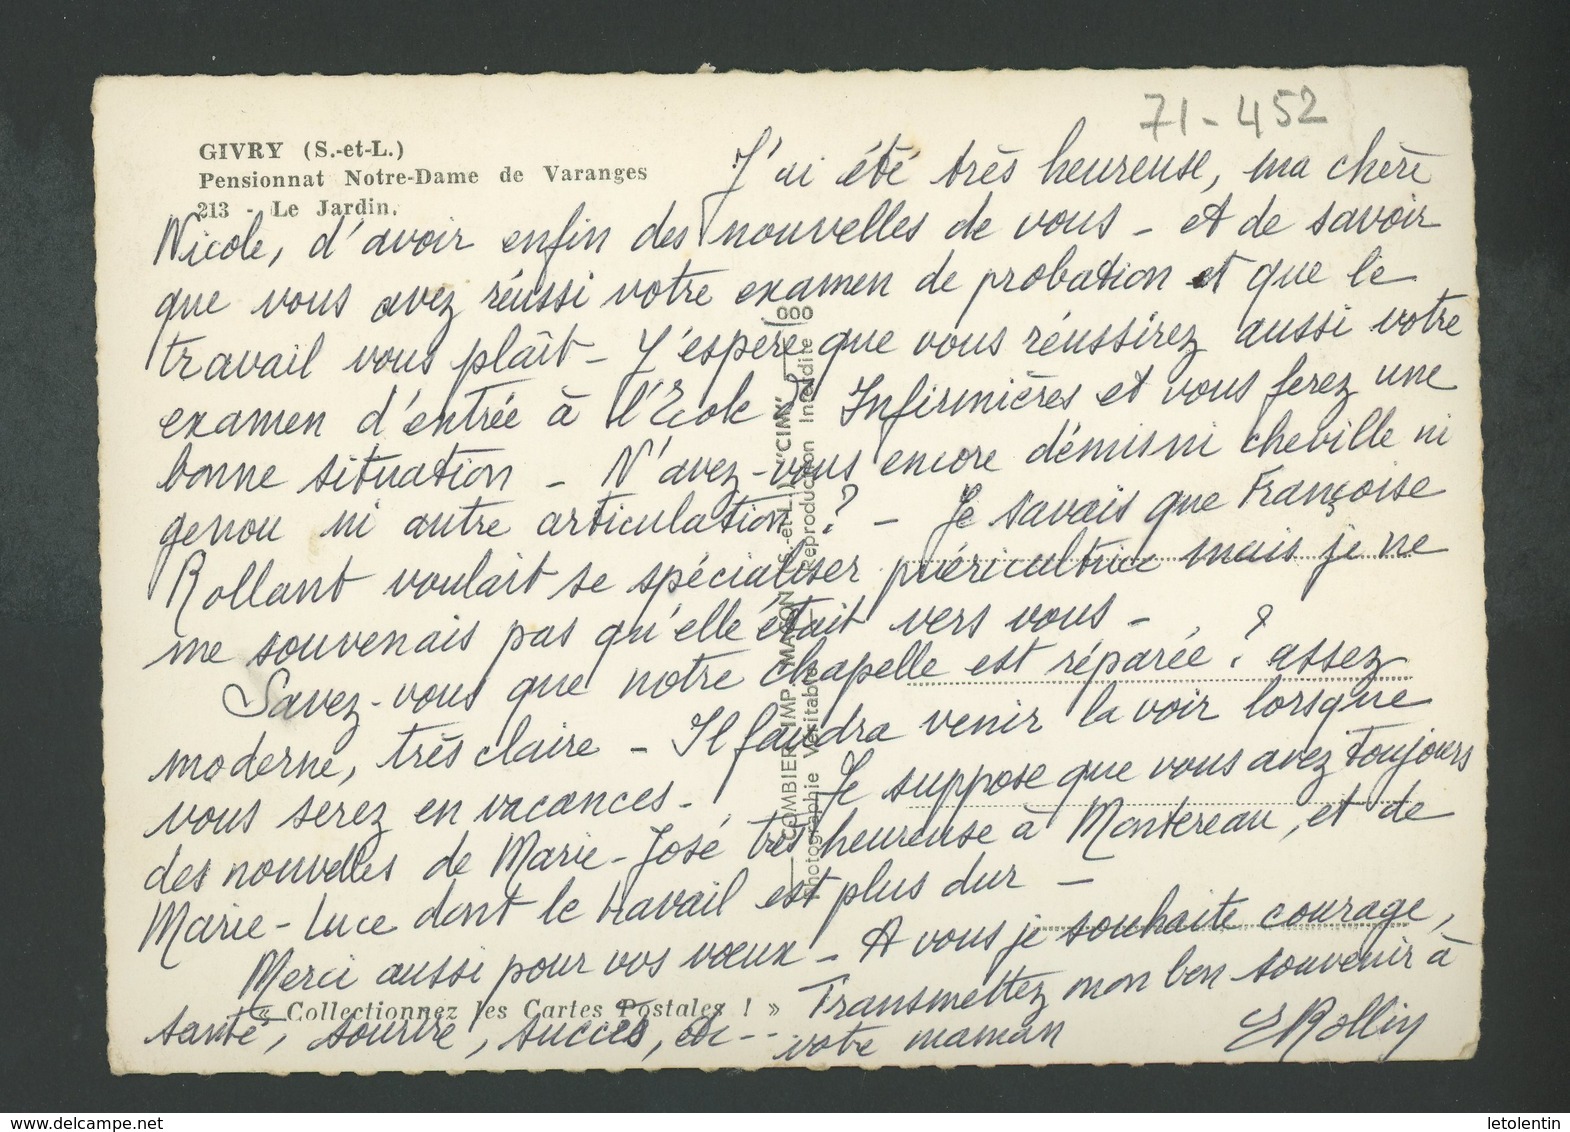 71-452
GIVRY (S.-et-L.)
Pensionnat Notre-Dame de Varanges
213 - Le Jardin.
J'ai été très heureuse, ma chère
Nicole, d'avoir enfin des nouvelles de vous - et de savoir
que vous avez réussi votre examen de probation et que le
travail vous plaît - J'espère que vous réussirez aussi votre
examen d'entrée à l'Ecole d' Infirmières et vous ferez une
bonne situation - N'avez-vous encore démis ni cheville ni
genou ni autre articulation ? - Je savais que Françoise
Rollant voulait se spécialiser puéricultrice mais je ne
me souvenais pas qu'elle était vers vous -
Savez-vous que notre chapelle est réparée ? assez
moderne, très claire - Il faudra venir la voir lorsque
vous serez en vacances - Je suppose que vous avez toujours
des nouvelles de Marie-José très heureuse à Montereau, et de
Marie-Luce dont le travail est plus dur -
Merci aussi pour vos vœux - A vous je souhaite courage,
santé, sourire, succès, etc -- Transmettez mon bon souvenir à
votre maman
ERollin
« Collectionnez les Cartes Postales ! »
COMBIER IMP. MACON (S.-et-L.) "CIM"
Photographie Véritable Reproduction Interdite
000
delcampe.net
letolentin